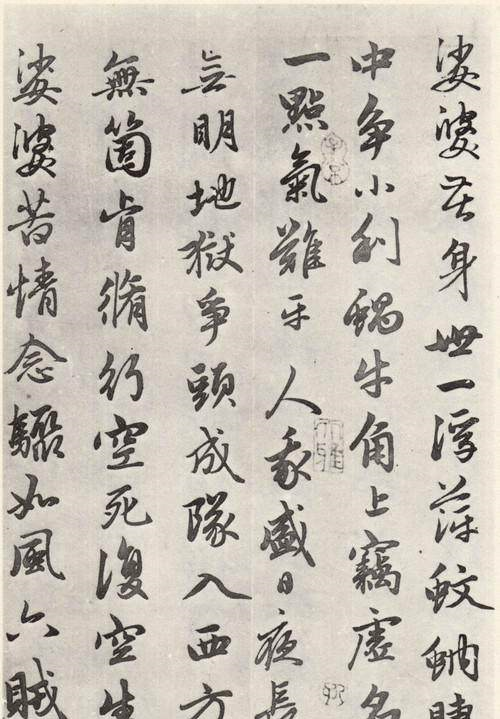 娑婆苦身世一浮萍蚊蚋睫
中争小利蝸牛角上竊虛名
一點氣難平 人我盛日夜長
无明地獄爭頭成隊入西方
無箇肯脩行空死復空生
娑婆苦情念驟如風六賊